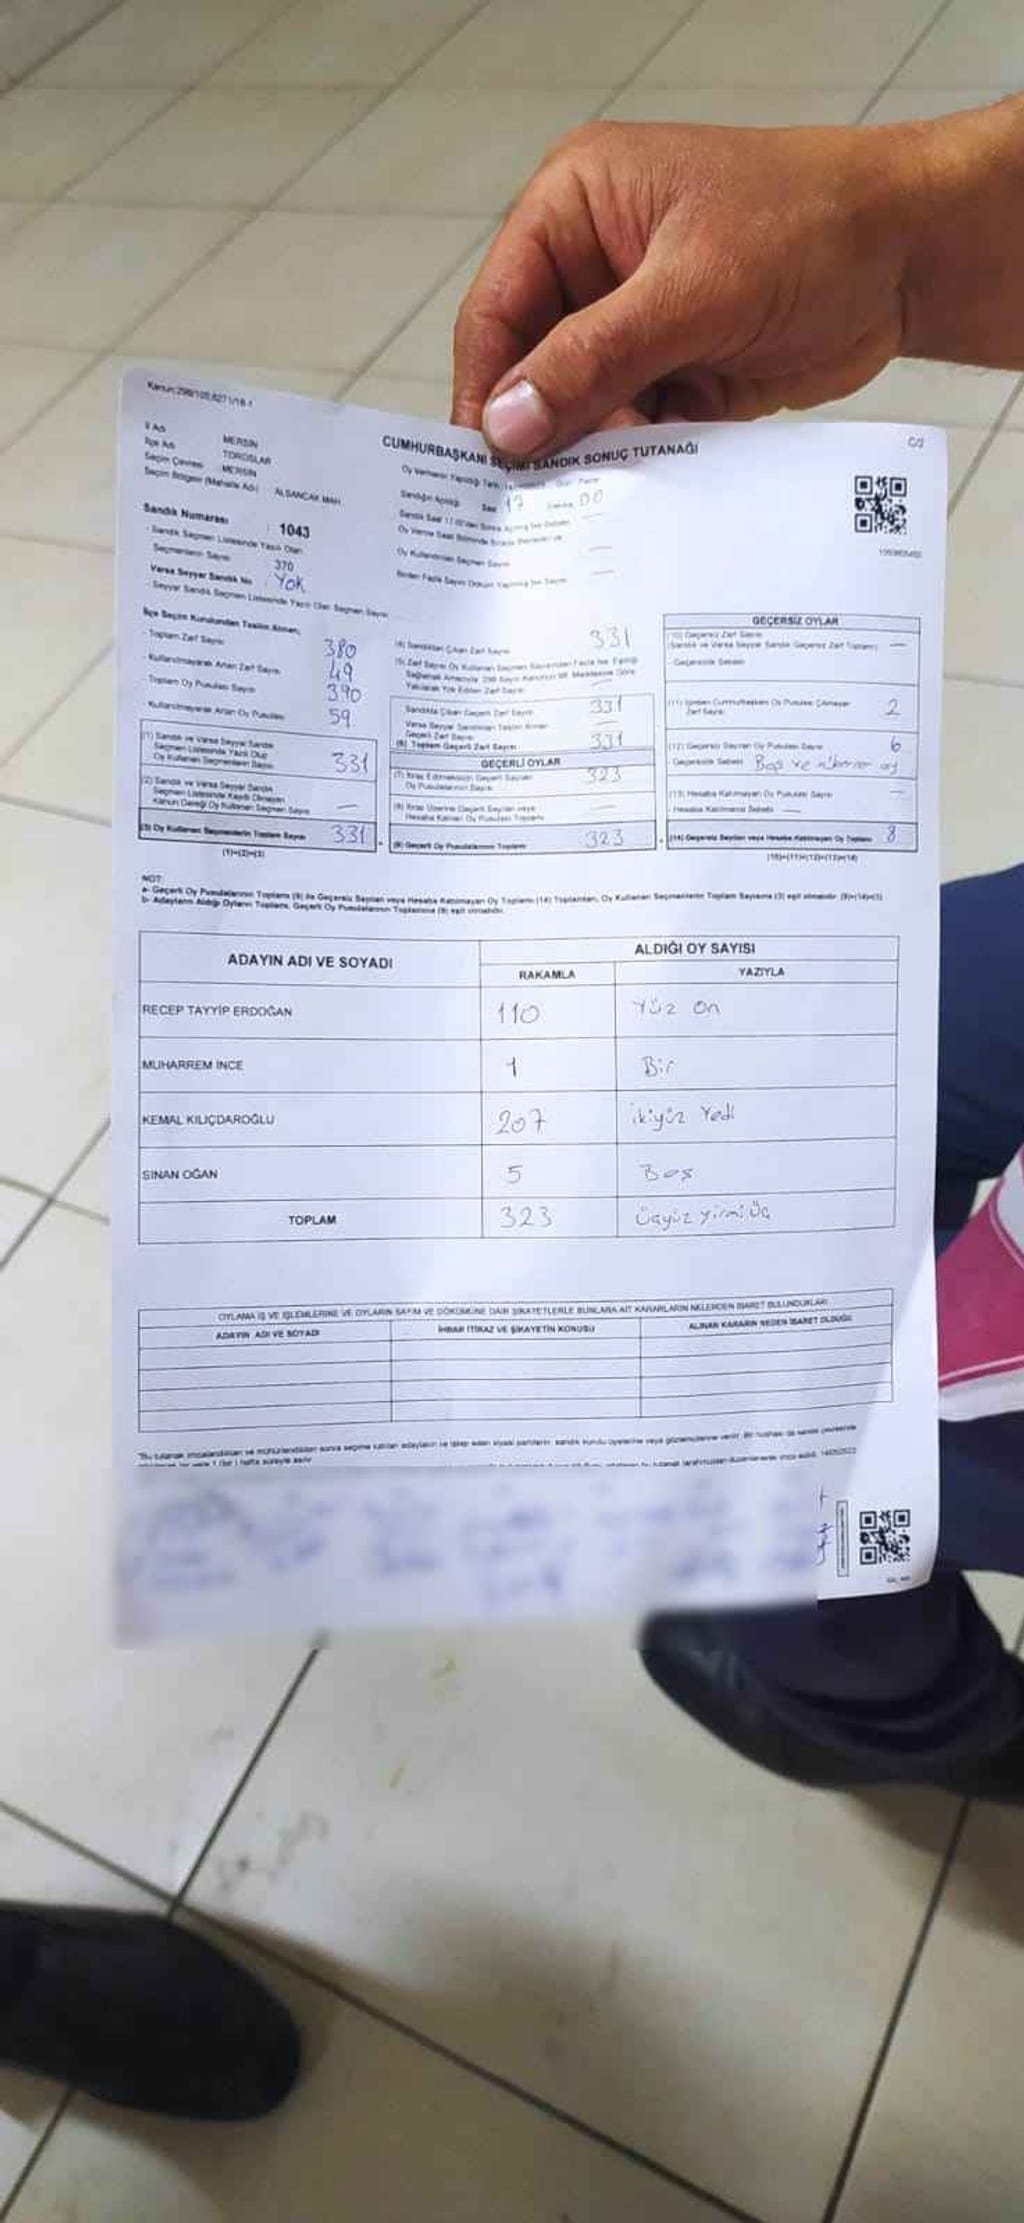 Kanun:298/105,6271/18-1
C/2
CUMHURBAŞKANI SEÇİMİ SANDIK SONUÇ TUTANAĞI
İl Adı MERSİN
İlçe Adı TOROSLAR
Seçim Çevresi MERSİN
Seçim Bölgesi (Mahalle Adı) ALSANCAK MAH
Sandık Numarası : 1043
- Sandık Seçmen Listesinde Yazılı Olan
Seçmenlerin Sayısı 370
Varsa Seyyar Sandık No : YOK
- Seyyar Sandık Seçmen Listesinde Yazılı Olan Seçmen Sayısı
Oy Vermenin Yapıldığı Tarih
Sandığın Açıldığı Saat 17 Dakika 00
Oy Kullandıran Seçmen Sayısı —
Birden Fazla Sayım Döküm Yapılmış İse Sayısı —
İlçe Seçim Kurulundan Teslim Alınan;
- Toplam Zarf Sayısı 380
- Kullanılmayarak Artan Zarf Sayısı 49
- Toplam Oy Pusulası Sayısı 390
- Kullanılmayarak Artan Oy Pusulası 59
(1) Sandık ve Varsa Seyyar Sandık
Seçmen Listesinde Yazılı Olup
Oy Kullanan Seçmenlerin Sayısı 331
(2) Sandık ve Varsa Seyyar Sandık
Seçmen Listesinde Kayıtlı Olmayan
Kanun Gereği Oy Kullanan Seçmen Sayısı —
(3) Oy Kullanan Seçmenlerin Toplam Sayısı 331
(1)+(2)=(3)
(4) Sandıktan Çıkan Zarf Sayısı 331
(5) Zarf Sayısı Oy Kullanan Seçmen Sayısından Fazla İse, Eşitliği
Sağlamak Amacıyla 298 Sayılı Kanunun 98. Maddesine Göre
Yakılarak Yok Edilen Zarf Sayısı —
Sandıkta Çıkan Geçerli Zarf Sayısı 331
Varsa Seyyar Sandıktan Teslim Alınan
Geçerli Zarf Sayısı —
(6) Toplam Geçerli Zarf Sayısı 331
GEÇERLİ OYLAR
(7) İtiraz Edilmeksizin Geçerli Sayılan
Oy Pusulalarının Sayısı 323
(8) İtiraz Üzerine Geçerli Sayılan veya
Hesaba Katılan Oy Pusulası Toplamı —
(9) Geçerli Oy Pusulalarının Toplamı 323
GEÇERSİZ OYLAR
(10) Geçersiz Zarf Sayısı
(Sandık ve Varsa Seyyar Sandık Geçersiz Zarf Toplamı) —
Geçersizlik Sebebi
(11) İçinden Cumhurbaşkanı Oy Pusulası Çıkmayan
Zarf Sayısı 2
(12) Geçersiz Sayılan Oy Pusulası Sayısı 6
- Geçersizlik Sebebi Boş ve oy
(13) Hesaba Katılmayan Oy Pusulası Sayısı —
- Hesaba Katılmama Sebebi —
(14) Geçersiz Sayılan veya Hesaba Katılmayan Oy Toplamı 8
(10)+(11)+(12)+(13)=(14)
NOT:
a- Geçerli Oy Pusulalarının Toplamı (9) ile Geçersiz Sayılan veya Hesaba Katılmayan Oy Toplamı (14) Toplamları, Oy Kullanan Seçmenlerin Toplam Sayısına (3) eşit olmalıdır. (9)+(14)=(3)
b- Adayların Aldığı Oyların Toplamı, Geçerli Oy Pusulalarının Toplamına (9) eşit olmalıdır.
ADAYIN ADI VE SOYADI ALDIĞI OY SAYISI
RAKAMLA YAZIYLA
RECEP TAYYİP ERDOĞAN 110 Yüz On
MUHARREM İNCE 1 Bir
KEMAL KILIÇDAROĞLU 207 ikiyüz Yedi
SİNAN OĞAN 5 Beş
TOPLAM 323 Üçyüz yirmi Üç
OYLAMA İŞ VE İŞLEMLERİNE VE OYLARIN SAYIM VE DÖKÜMÜNE DAİR ŞİKAYETLERLE BUNLARA AİT KARARLARIN NELERDEN İBARET BULUNDUKLARI
ADAYIN ADI VE SOYADI İHBAR İTİRAZ VE ŞİKAYETİN KONUSU ALINAN KARARIN NEDEN İBARET OLDUĞU